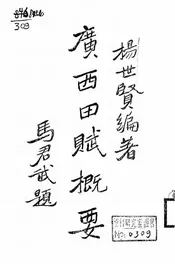 楊世賢編著
廣西田賦概要
馬君武題
309
No: 0309